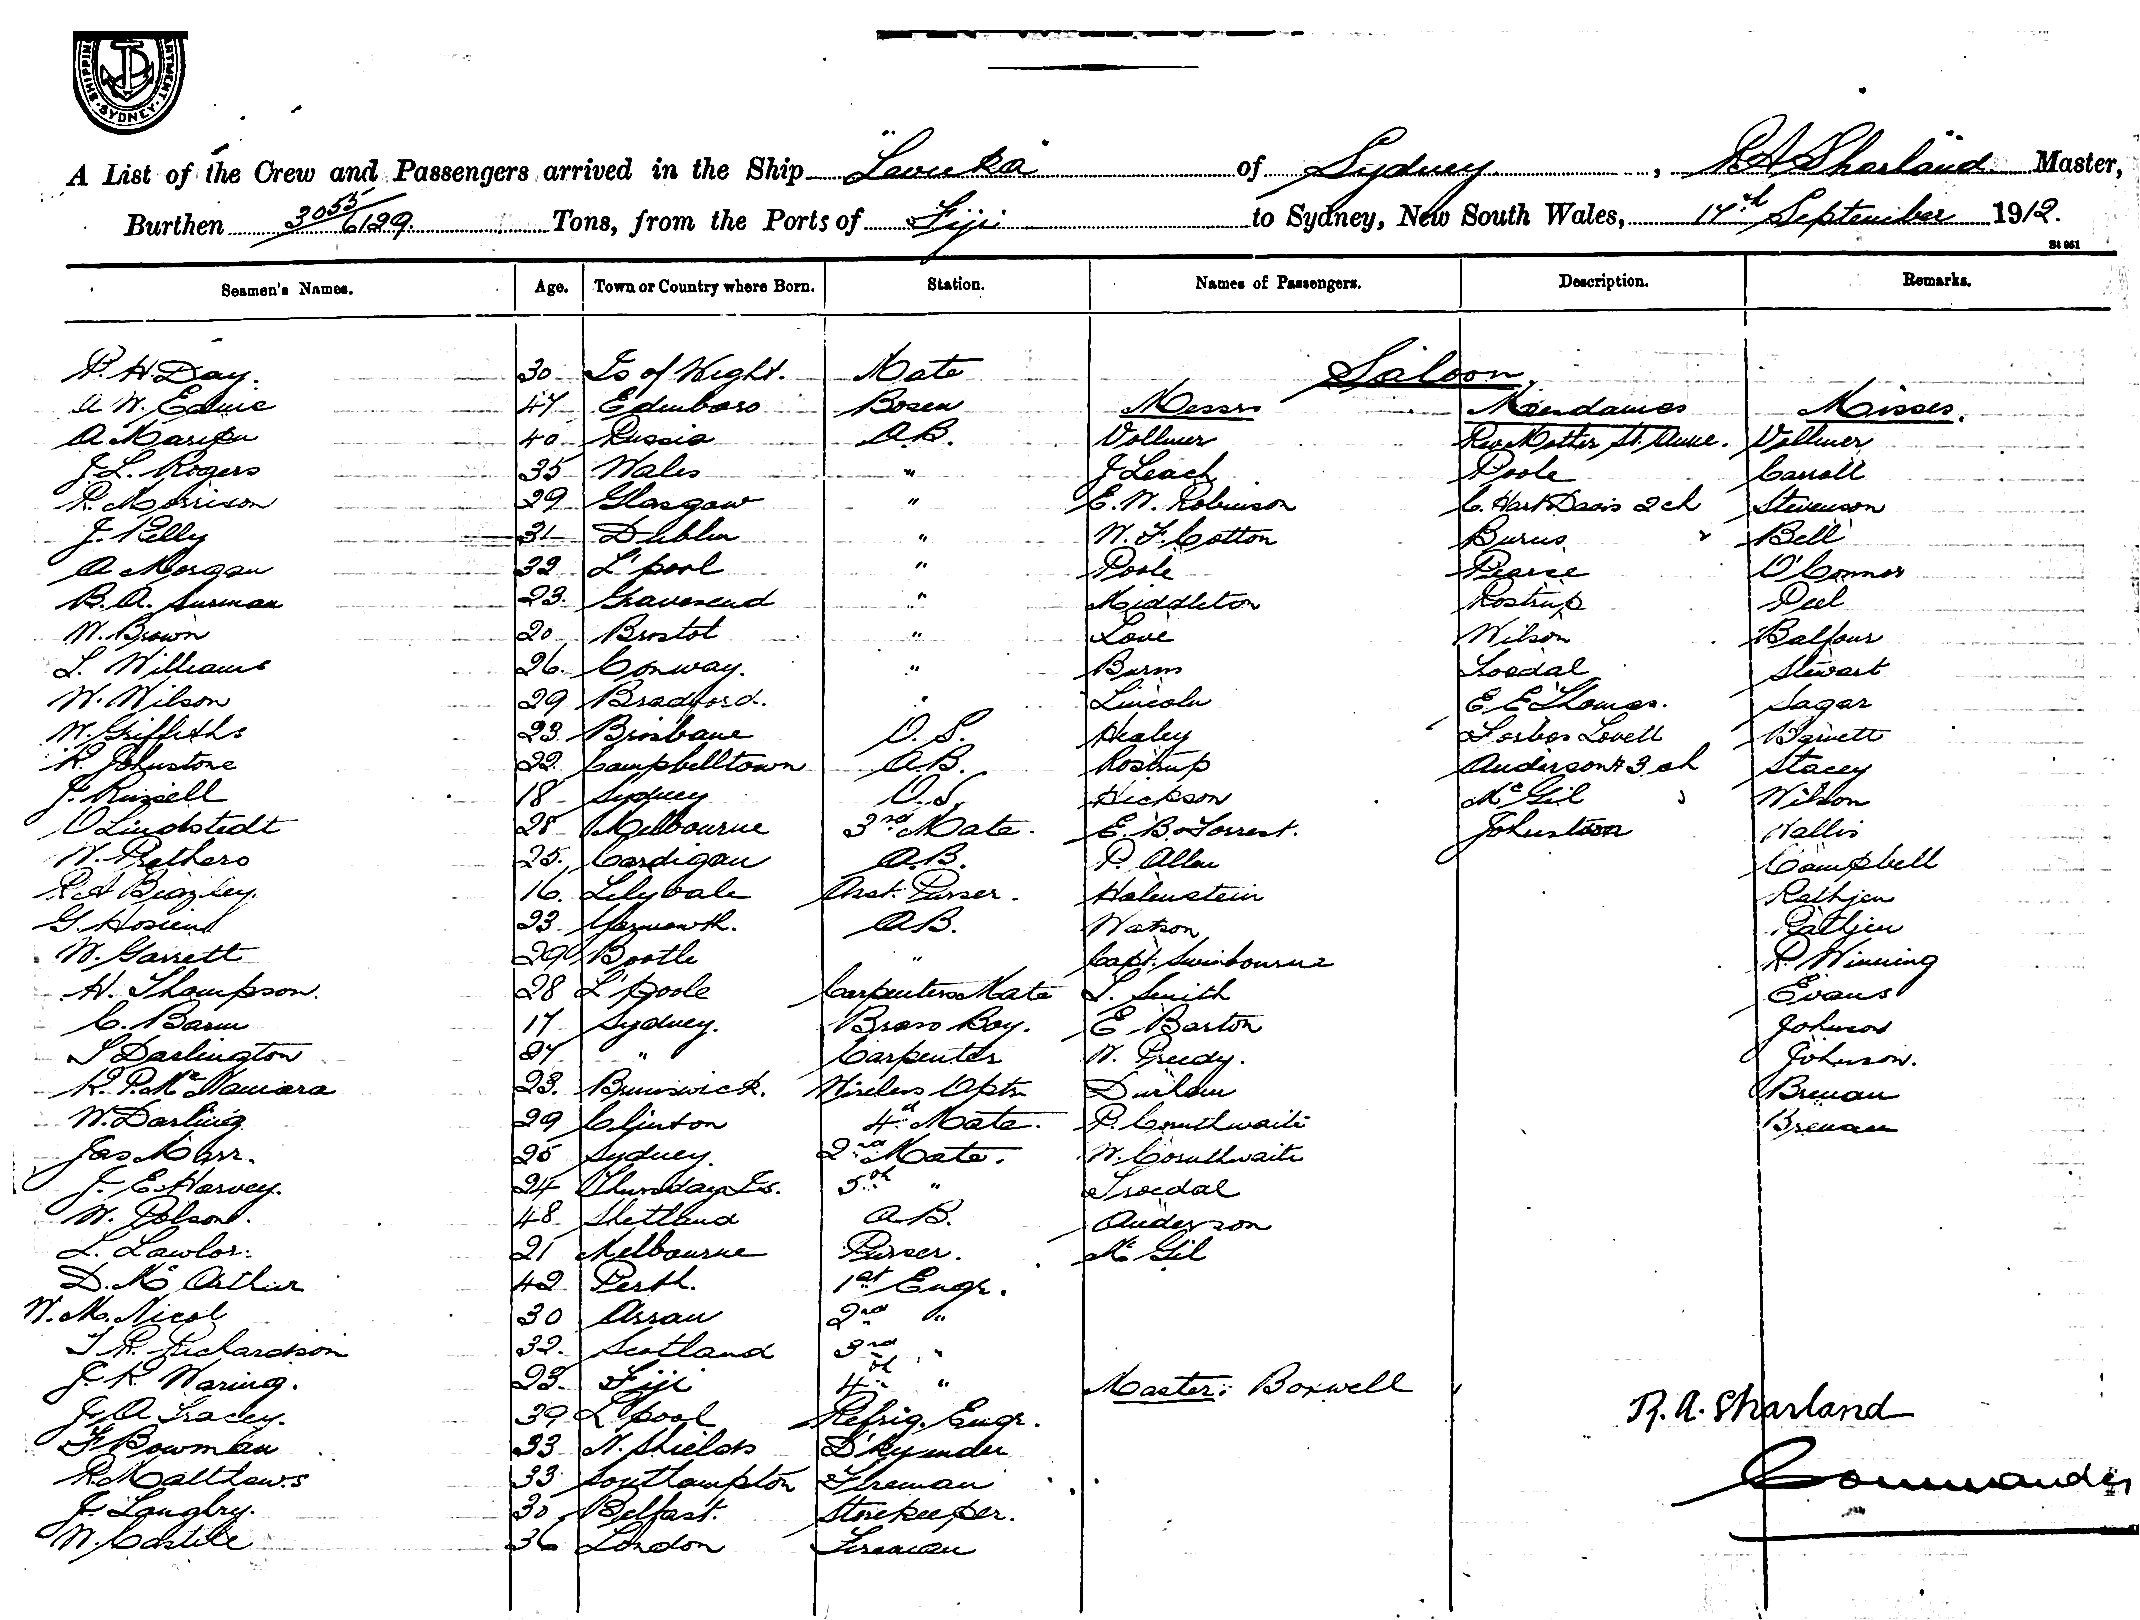 SHIPPING DEPARTMENT SYDNEY
A List of the Crew and Passengers arrived in the Ship "Levuka" of Sydney, R A Sharland Master,
Burthen 3053/6129 Tons, from the Ports of Fiji to Sydney, New South Wales, 17th September 1912.
St 661
Seamen's Names. Age. Town or Country where Born. Station. Names of Passengers. Description. Remarks.
Saloon.
P. H. Day. 30 Is of Wight. Mate
A W. 47 Edinboro Bosen Messrs Mesdames Misses.
A 40 Russia A.B. Vollmer Rev Mother St. Anne. Vollmer
J. L. Rogers 35 Wales " J Leach Poole Carroll
R. Morrison 29 Glasgow " E. W. Robinson C. Hart Davis 2 ch Stevenson
J. Kelly 31 Dublin " W. F. Cotton Burns Bell
A Morgan 32 L'pool " Poole Pearse O'Connor
B. A. Surman 23. Gravesend " Middleton Rostrup Peel
W. Brown 20 Bristol " Love Wilson Balfour
L. Williams 26. Conway. " Burns Stewart
W. Wilson 29 Bradford. " Lincoln E E Thomas. Sagar
W. Griffiths 23 Brisbane O.S. Healey Forbes Lovell Barnett
R. Johnstone 22 Campbelltown A.B. Rostrup Anderson & 3 ch Stacey
J. Russell 18 Sydney O.S. Hickson McGil Wilson
O Lindstedt 28 Melbourne 3rd Mate. E. B. Forrest. Johnston Wallis
W. Prethero 25. Cardigan A.B. P. Allen Campbell
R A Beazley. 16. Lilyvale Asst. Purser. Holenstein Rathjen
G. 23 Yarmouth. A.B. Watson Rathjen
W. Garrett 29 Bootle " Capt. Swinbourne R. Winning
H. Thompson. 28 L'poole Carpenters Mate L. Smith Evans
C. Barm 17 Sydney. Brass Boy. E Barton Johnson
S Darlington 27 " Carpenter W. Preedy. Johnson.
R. P. McNamara 23. Brunswick. Wireless Optr Durham Brenan
W. Darling 29 Clinton 4th Mate. P. Couthwaite Brenan
Jas Marr. 25 Sydney. 2nd Mate. W. Couthwaite
J. E. Harvey. 24 Thursday Is. 5th " Troedal
W. Polson. 48 Shetland A.B. Anderson
L. Lawlor. 21 Melbourne Purser. McGil
D. McArthur 42 Perth. 1st Engr.
W. M. Nicol 30 Arran 2nd "
T R. Richardson 32. Scotland 3rd "
J. R Waring. 23. Fiji 4th " Master: Boxwell
J. A Tracey. 39 L'pool Refrig. Engr.
F Bowman 33 N. Shields D'kyman
R. Matthews 33 Southampton Fireman
J. Langbry. 30 Belfast. Storekeeper.
W. Carlile 36 London Fireman
R. A. Sharland
Commander